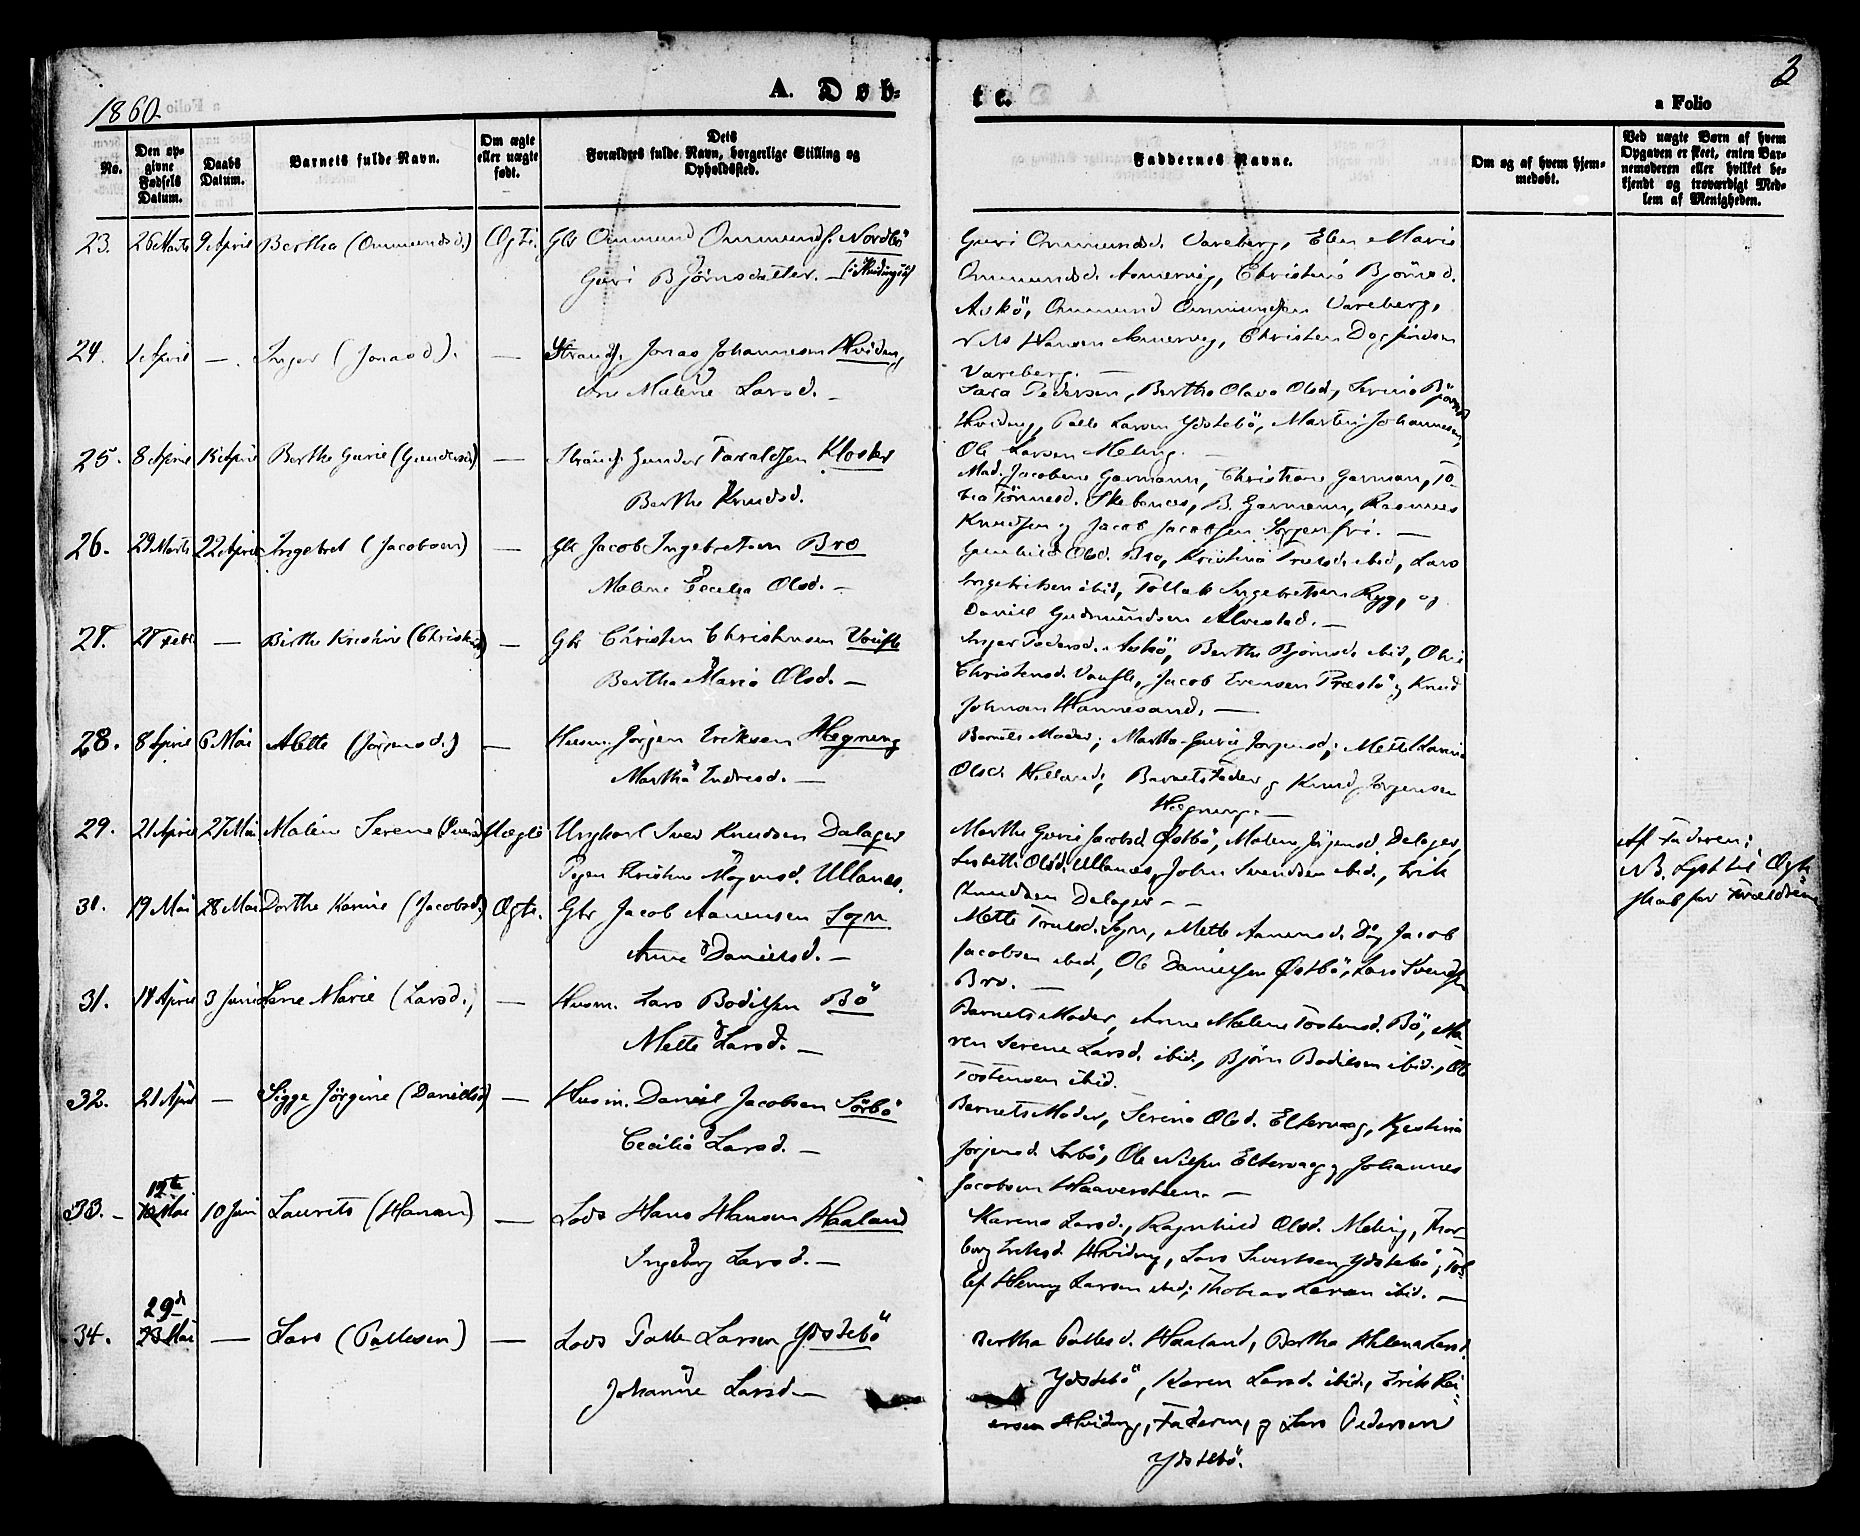 1860.
A. Døb-
te.
a Folio
3
No.
Den op-
givne
Fødsels
Datum.
Daabs
Datum.
Barnets fulde Navn.
Om ægte
eller uægte
født.
Dets
Forældres fulde Navn, borgerlige Stilling og
Opholdssted.
Faddernes Navne.
Om og af hvem hjem-
medøbt.
Ved uægte Børn af hvem
Opgaven er skeet, enten Bar-
nemoderen eller hvilket be-
kjendt og troværdigt Med-
lem af Menigheden.
23. 26 Marts 9 April Bertha (Ommundsd.) Ægte. Gbr Ommund Ommunds. Nordbö
Guri Bjørnsdatter.
Guri Ommundsd. Vareberg, Elen Marie
Ommundsd. Christine Bjørnsd.
Askö, Ommund Ommundsen Vareberg,
Nils Hansen Christen Dagfinsen
Vareberg. —
24. 1 April — Inger (Jonasd.). — Strands. Jonas Johannesen Hviding,
Ane Malene Larsd. —
Sara Pedersen, Bertha Olava Olsd, Serine
Hviding, Palle Larsen Ydstebö, Martin Johannesen,
Ole Larsen Meling. —
25. 8 April 15 April Berthe Gurie (Gundersd) — Strands. Gunder Taraldsen Kloster
Berthe Knudsd.
Mad. Jacobine Garmann, Christiane Garman, To-
bia Tönnesd. B. Garmann, Rasmus
Knudsen og Jacob Jacobsen Sorgenfri. —
26. 29 Marts 22 April Ingebret (Jacobsen) — Gbr Jacob Ingebretsen Bro
Malene Cecilia Olsd. —
Gunhild Olsd. Bro, Kristine Trulsd. ibid, Lars
Ingebretsen ibid, Tollak Ingebretsen Ryg, og
Daniel Gudmundsen Alvestad. —
27. 27 Febr — Birthe Kristine (Christensd) — Gbr Christen Christensen Voufle
Bertha Maria Olsd. —
Inger Pedersd. Askö, Berthe Bjørnsd. ibid,
Christensd. Voufle, Jacob Evensen Præstö og Knud
Johnsen Hannesand. —
28. 8 April 6 Mai Mette (Jörgensd.) — Husm. Jörgen Eriksen Hegning
Martha Endresd. —
Barnets Moder; Martha Gurie Jørgensd; Mette Karine
Olsd. Barnets Fader og Knud Jørgensen
Hegning. —
29. 21 April 27 Mai Malene Serene (Sveinsd) Uægte Ungkarl Sven Knudsen Dalager
Pigen Kristine Magnusd. Ullanes.
Marthe Gurie Jacobsd. Østbö, Malene Jörgensd. Dalager,
Lisbeth Olsd. Ullanes, John Svendsen ibid., Erik
Knudsen Dalager — —
Af Faderen;
NB. Lyst til Ægte
skab for Forældrene
30. 19 Mai 28 Mai Dorthe Karine (Jacobsd.) Ægte. Gbr Jacob Aanensen Sogn
Anne Danielsd. —
Mette Trulsd. Sogn, Mette Aanensd. Jacob
Jacobsen ibid, Ole Danielsen Østbö, Lars Svendsen
Bro. —
31. 17 April 3 Juni Lene Marie (Larsd.) — Husm. Lars Bodilsen Bö
Mette Larsd. —
Barnets Moder, Anne Malene Tostensd. Bö, Ma-
ren Serene Larsd. ibid., Bjørn Bodilsen ibid., Ole
Tostensen ibid.
32. 21 April — Sigge Jörgine (Danielsd) — Husm. Daniel Jacobsen Sörbö
Cecilia Larsd. —
Barnets Moder, Serine Olsd. Eltervaag, Kjestina
Jörgensd. Sörbö, Ole Nilsen Eltervaag og Johannes
Jacobsen Haaversteen. —
33. 12te Mai 10 Juni Laurits (Hansen) — Lods Hans Hansen Haaland
Ingeborg Larsd. —
Karena Larsd., Ragnhild Olsd. Meling, Thor-
borg Eriksd. Hviding, Lars Sivertsen Ydstebö, Tol-
lef Henning Larsen ibid; Thomas Larsen ibid. —
34. 29de Mai — Lars (Pallesen) — Lods Palle Larsen Ydstebö
Johanne Larsd. —
Bertha Pallesd. Haaland, Bertha Helena Larsd.
Ydstebö, Karen Larsd. ibid., Erik Rei-
ersen Hviding, Faderen, og Lars Pedersen
Ydstebö.